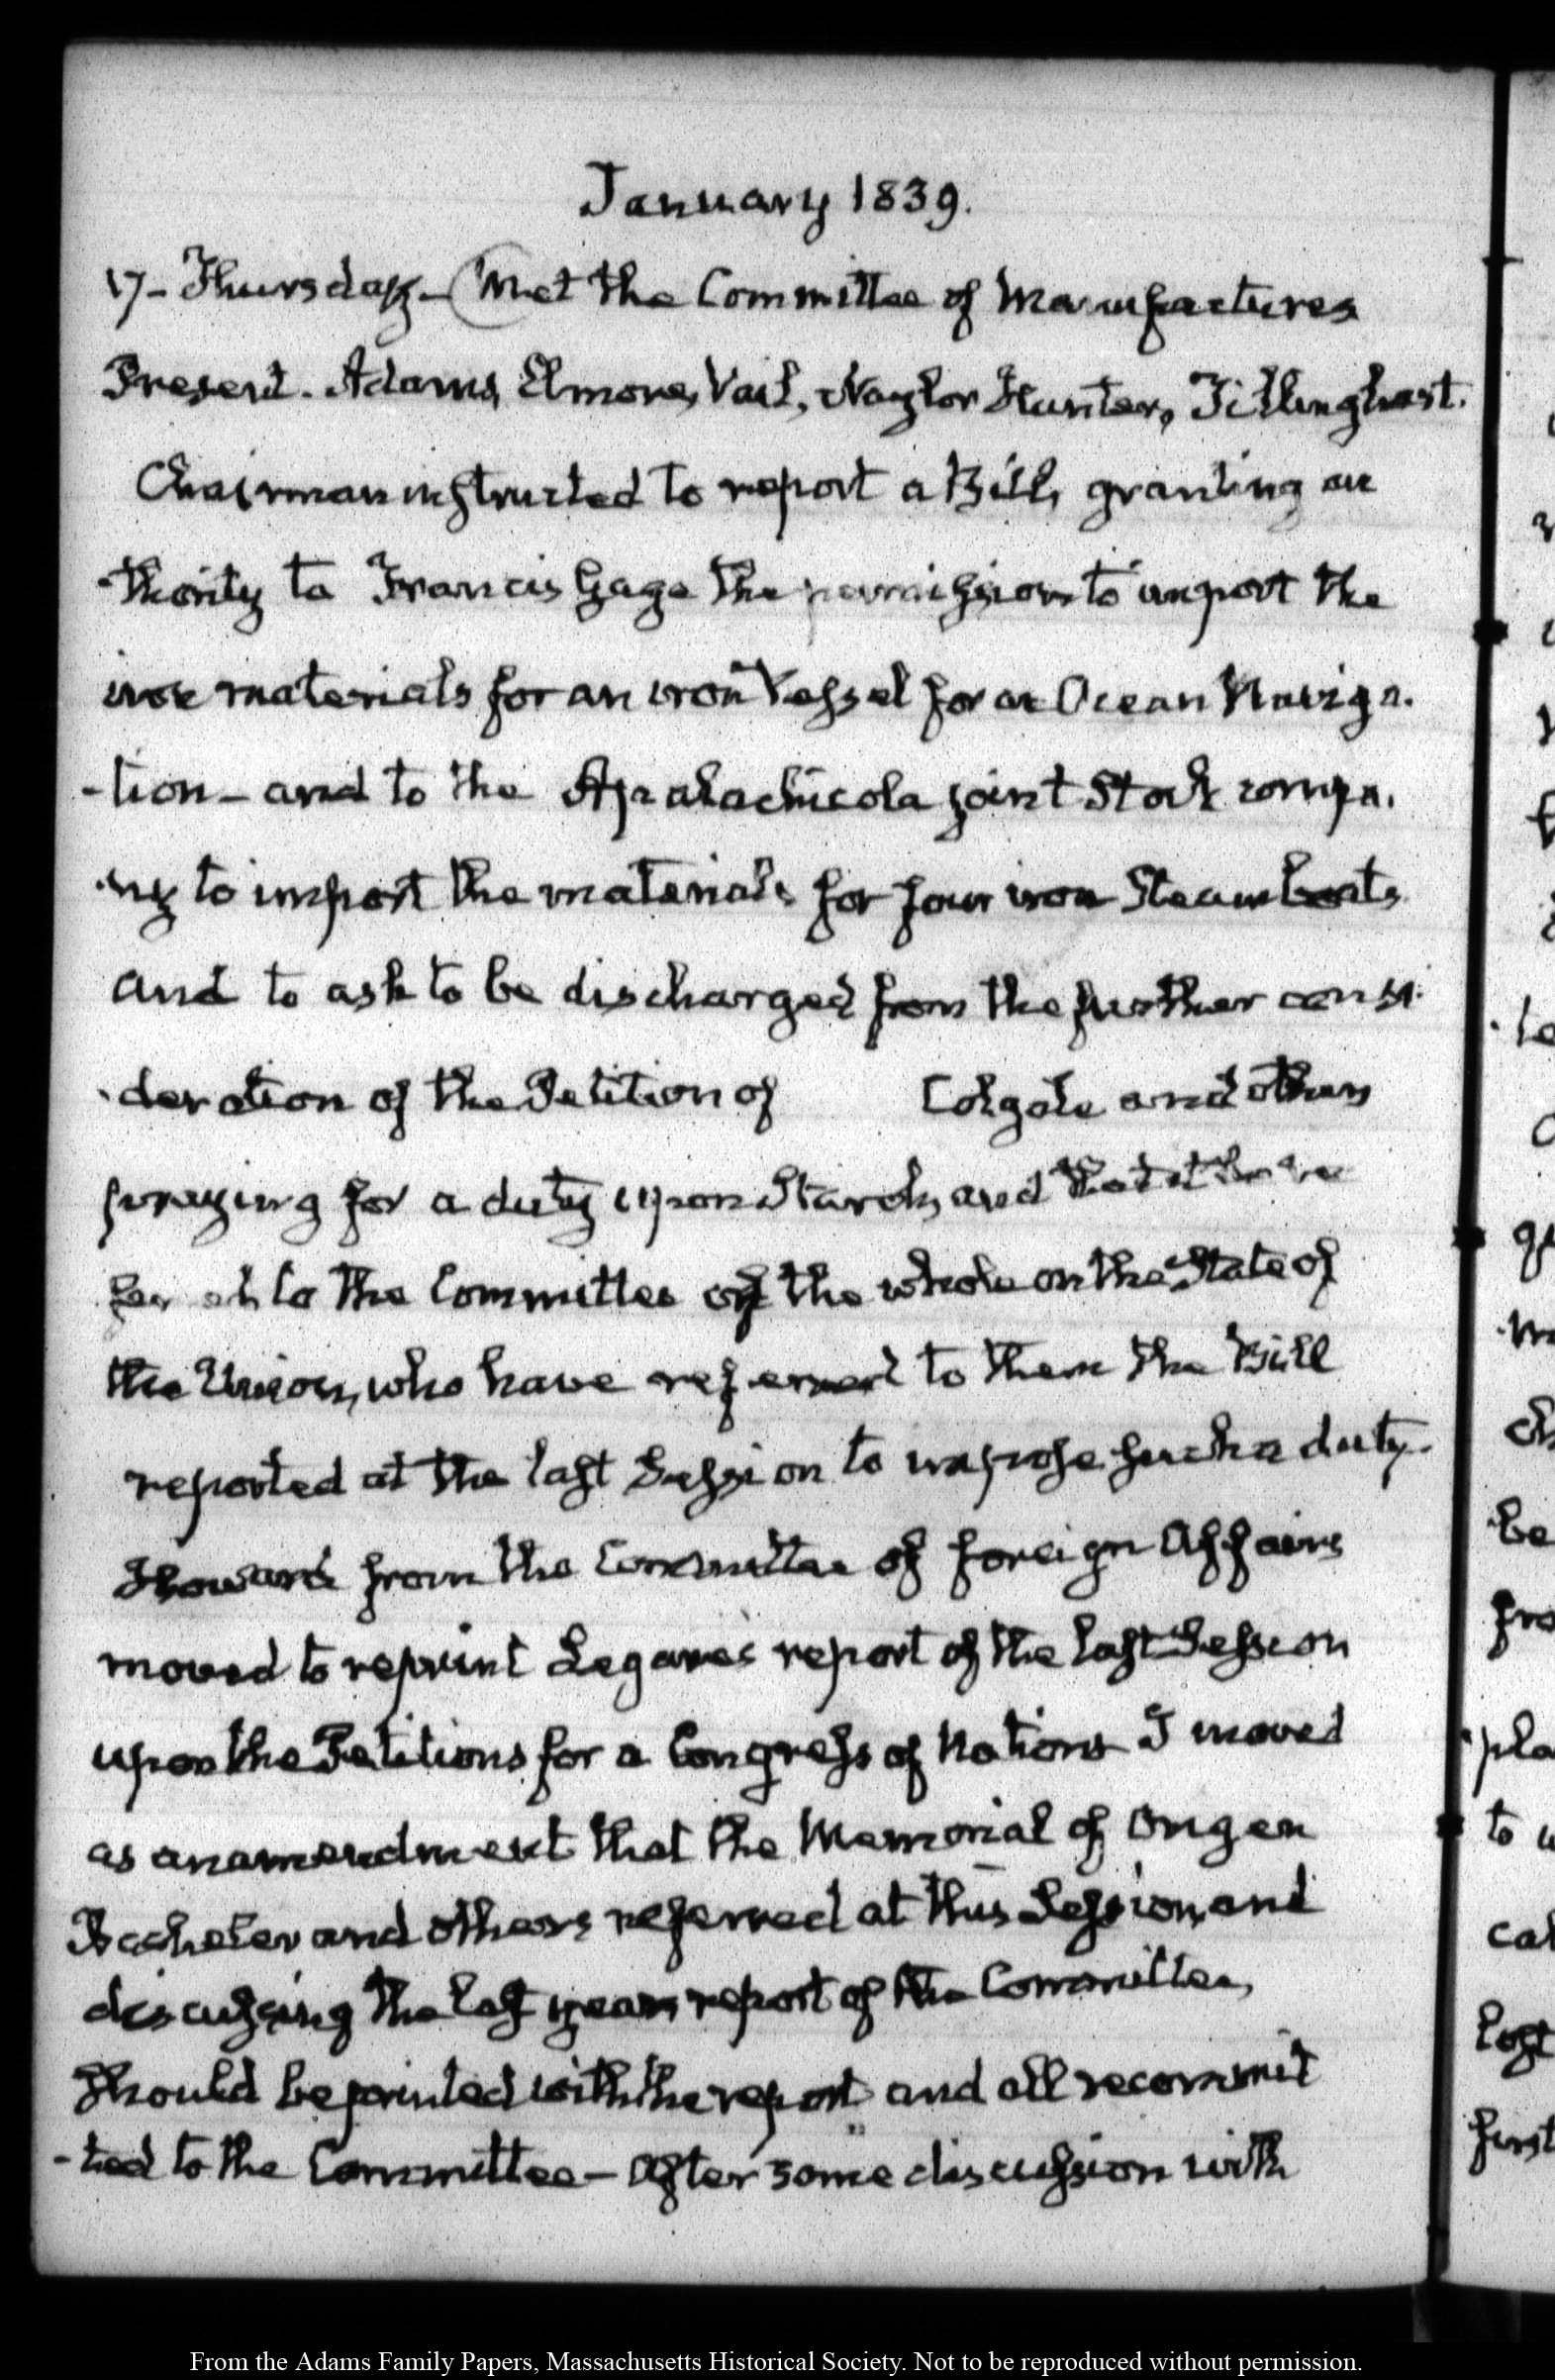 January 1839.
17 - Thursday - (Met the Committee of Manufactures
Present. Adams, Elmore, Vail, Naylor Hunter, Tillinghast.
Chairman instructed to report a Bill, granting au
-thority to Francis Gage the permission to import the
materials for an iron Vessel for Ocean Naviga.
-tion - and to the Apalachicola joint Stock compa.
-ny to import the materials for four iron Steam boats
and to ask to be discharged from the further consi.
-deration of the Petition of Colgate and others
praying for a duty upon Starch, and that it be re
to the Committee of the whole on the State of
the Union, who have referred to them the Bill
reported at the last Session to impose such a duty.
Howard from the Committee of Foreign Affairs
moved to reprint Legare's report of the last Session
upon the Petitions for a Congress of Nations I moved
as an amendment that the Memorial of Origen
Bacheler and others referred at this Session, and
discussing the last years report of the Committee,
should be printed with the report and all recommit
-ted to the Committee - After some discussion with
From the Adams Family Papers, Massachusetts Historical Society. Not to be reproduced without permission.